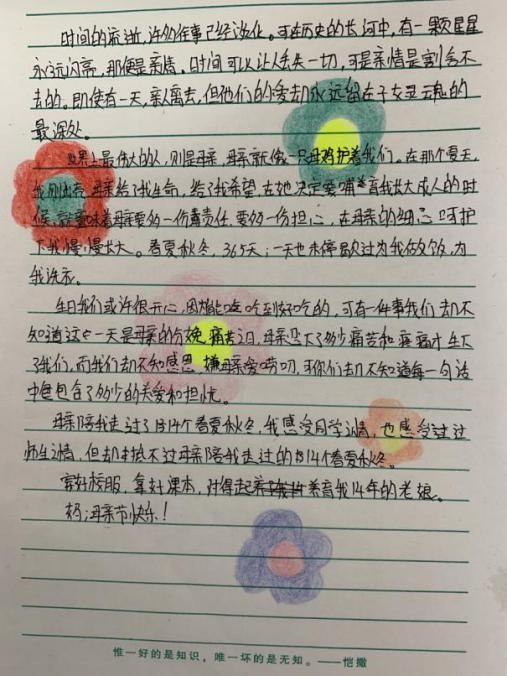 时间的流逝,许多往事已经淡化。可在历史的长河中,有一颗星星
永远闪亮,那便是亲情。时间可以让人丢失一切,可是亲情是割舍不
去的。即使有一天,亲人离去,但他们的爱却永远留在子女灵魂的
最深处。
世界上最伟大的人,则是母亲,母亲就像一只母鸡护着我们。在那个夏天,
我刚出壳,母亲给了我生命,给了我希望,在她决定要哺育我长大成人的时
候,就意味着母亲要多一份责任,要多一份担心,在母亲的细心呵护
下我慢慢长大。春夏秋冬,365天;一天也未停歇过为我做饭,为
我洗衣。
生日我们或许很开心,因为能吃到好吃的,可有一件事我们却不
知道这一天是母亲的分娩痛苦日,母亲受下了多少痛苦和疼痛才生下
了我们,而我们却不知感恩,嫌母亲爱唠叨,可你们却不知道每一句话
中包含了多少的关爱和担忧。
母亲陪我走过了14个春夏秋冬,我感受同学情,也感受过
师生情,但却抵不过母亲陪我走过的14个春夏秋冬。
穿好校服,拿好课本,对得起养育我14年的老娘。
妈;母亲节快乐!
惟一好的是知识,唯一坏的是无知。——恺撒